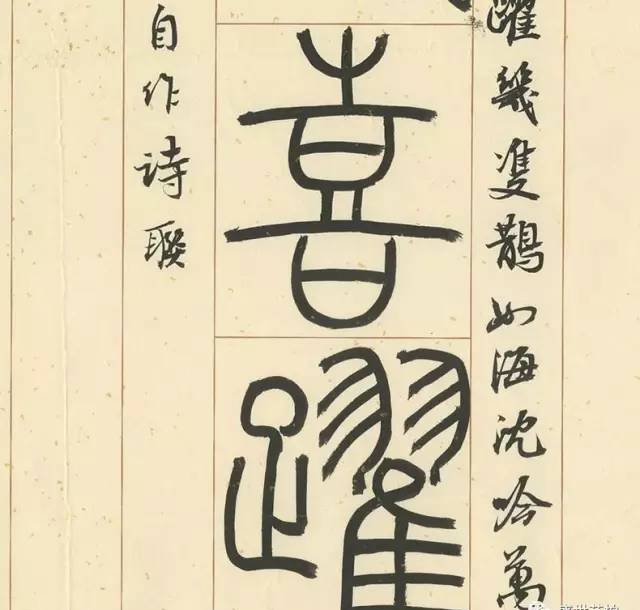 躍幾隻鵲如海沈吟萬
喜躍
自作诗联